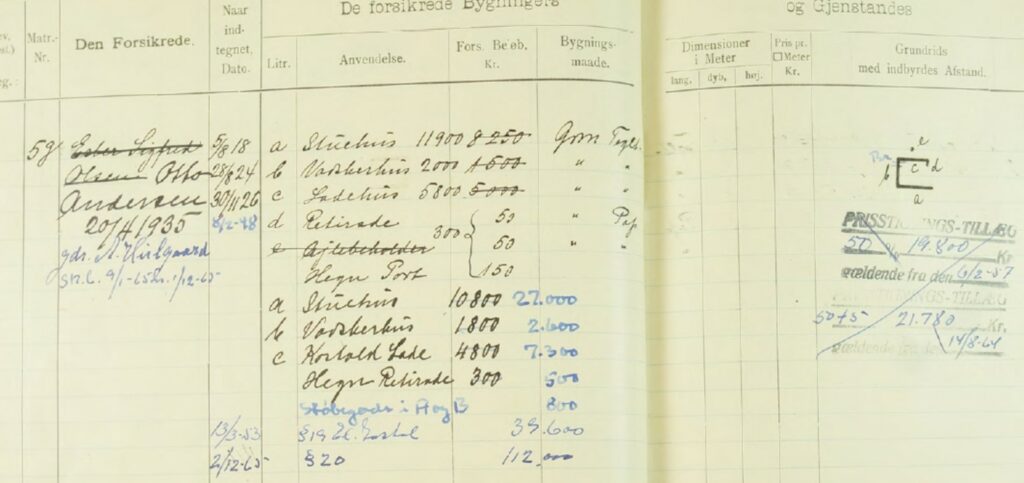 De forsikrede Bygningers
og Gjenstandes
Matr.-
Nr.
Den Forsikrede.
Naar
ind-
tegnet.
Date.
Litr.
Anvendelse.
Fors. Beløb.
Kr.
Bygnings-
maade.
Dimensioner
i Meter
lang, dyb, høj.
Pris pr.
□Meter
Kr.
Grundrids
med indbyrdes Afstand.
59 Ester Sigfred 5/8 18 a Stuehus 11900 8250 Grm Tagl.
Olsen Otto 28/8 24 b Vadskerhus 2000 1500 " "
Andersen 30/11 26 c Ladehus 5800 5000 " "
20/4 1935 8/2-48 d Retirade 300 50 " Pap
gdr. A. e Ajlebeholder 50 " "
9/1-65 1/12-65 Hegn Port 150
a Stuehus 10800 27.000
b Vadskerhus 1800 2.600
c Lade 4800 7.300
Hegn Retirade 300 500
i A og B 800
13/3-53 §19 El. 39.600
2/12-65 §20 112.000
e
b c d
a
PRISSTIGNINGS-TILLÆG
50 19.800 Kr
gældende fra den 6/2-57
PRISSTIGNINGS-TILLÆG
50+5 21.780 Kr.
gældende fra den 14/8-64